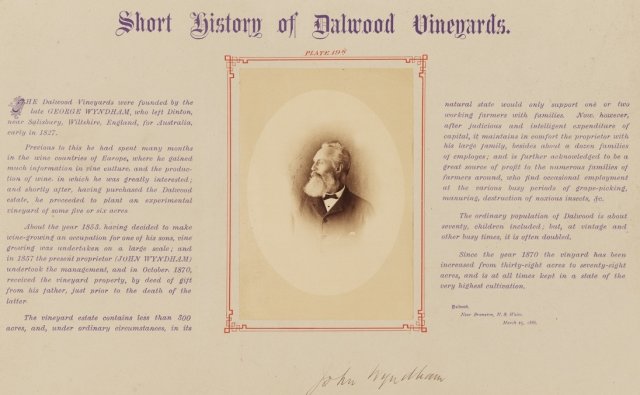 Short History of Dalwood Vineyards.
PLATE 198
THE Dalwood Vineyards were founded by the
late GEORGE WYNDHAM, who left Dinton,
near Salisbury, Wiltshire, England, for Australia,
early in 1827.
Previous to this he had spent many months
in the wine countries of Europe, where he gained
much information in vine culture, and the produc-
tion of wine, in which he was greatly interested;
and shortly after, having purchased the Dalwood
estate, he proceeded to plant an experimental
vineyard of some five or six acres.
About the year 1853, having decided to make
wine-growing an occupation for one of his sons, vine
growing was undertaken on a large scale; and
in 1857 the present proprietor (JOHN WYNDHAM)
undertook the management, and in October 1870,
received the vineyard property, by deed of gift
from his father, just prior to the death of the
latter.
The vineyard estate contains less than 300
acres, and, under ordinary circumstances, in its
natural state would only support one or two
working farmers with families. Now, however,
after judicious and intelligent expenditure of
capital, it maintains in comfort the proprietor with
his large family, besides about a dozen families
of employes; and is further acknowledged to be a
great source of profit to the numerous families of
farmers around, who find occasional employment
at the various busy periods of grape-picking,
manuring, destruction of noxious insects, &c.
The ordinary population of Dalwood is about
seventy, children included; but, at vintage and
other busy times, it is often doubled.
Since the year 1870 the vinyard has been
increased from thirty-eight acres to seventy-eight
acres, and is at all times kept in a state of the
very highest cultivation.
Dalwood,
Near Branxton, N. S. Wales.
March 15, 1886.
John Wyndham